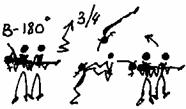 B-180°
3/4